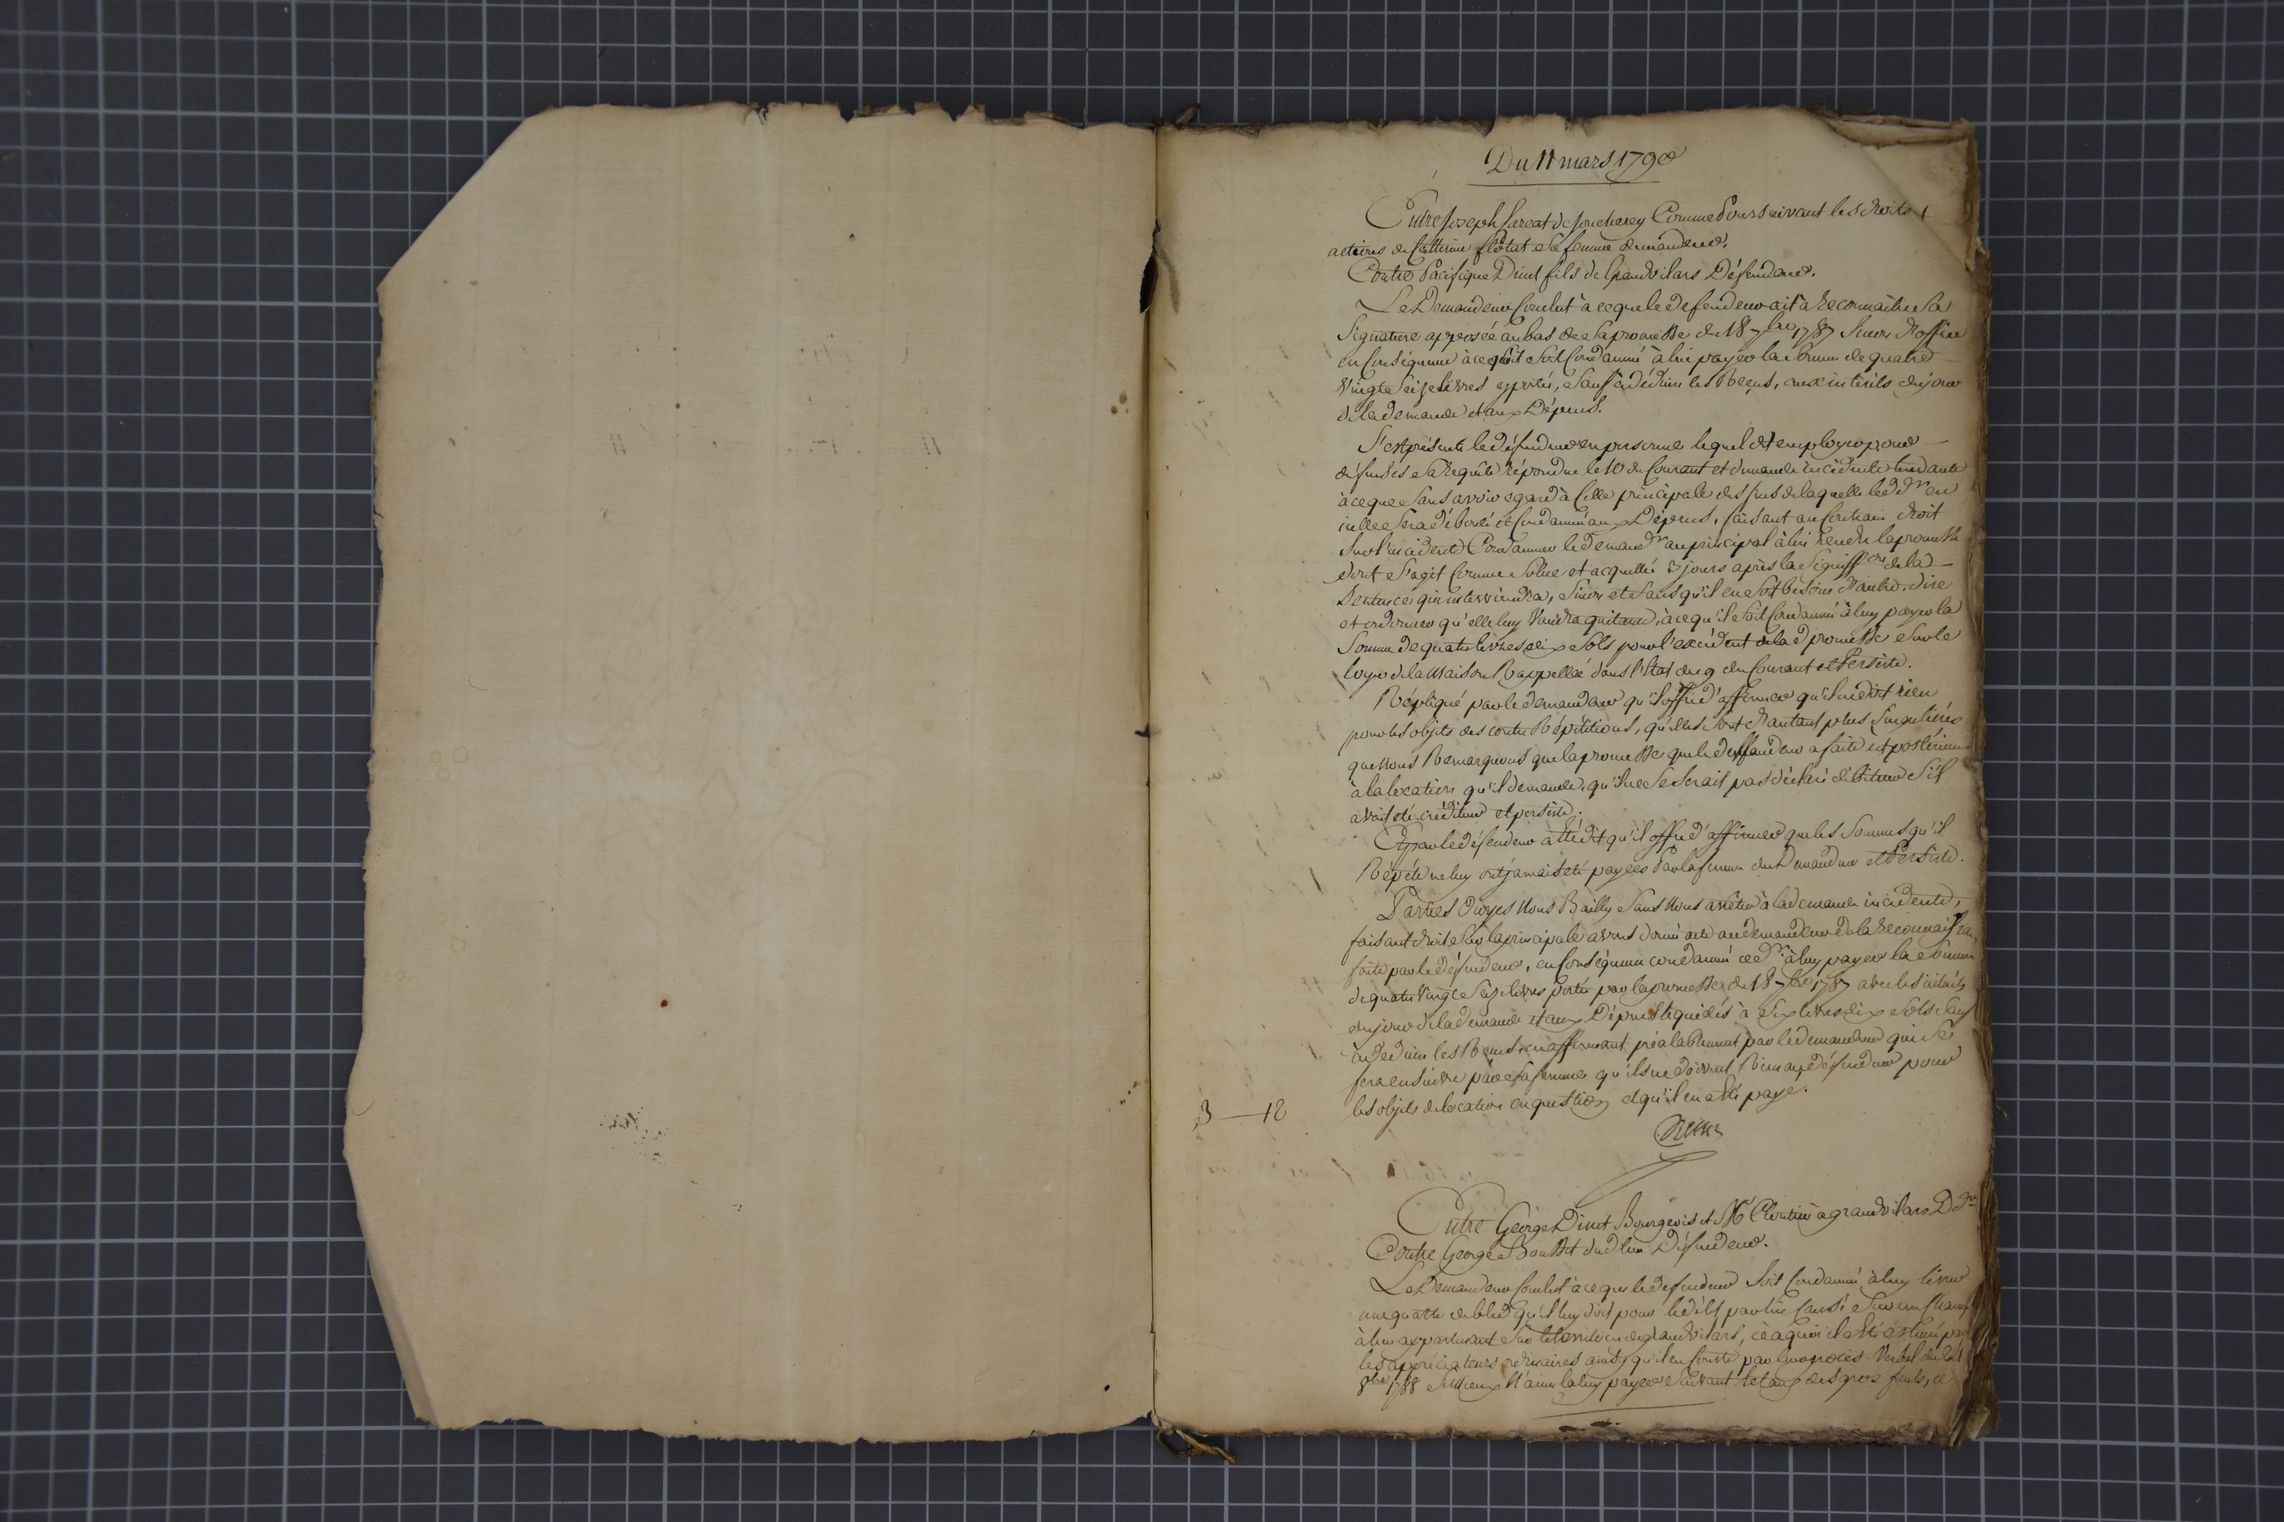 Du 11 mars 1790
Entre Joseph sarcat de Joncherey Comme Poursuivant les droits &
actions de Catherine flotat sa femme demandeur.
Contre Pacifique Dinet fils de Grandvilars Défendeur.
Le Demandeur Conclut à ce que le defendeur ait à Reconnaitre sa
Signature apposée au bas de sa promesse du 18 7bre 1787 sinon d'office
en Conséquence à ce qu'il soit Condamné à lui payer la somme de quatre
Vingts seize livres y portée, sauf à déduire les Reçus, aux intérêts du jour
de la demande et aux Dépens.
S'est présenté le défendeur en personne lequel a dit employer pour
défenses sa Requête répondue le 10 du Courant et demande incidente tendante
à ce que sans avoir egard à Celle principale des fins de laquelle le dr en
icelle sera débouté et Condamné aux Dépens, faisant au Contraire droit
sur l'incidente Condamner le demandr au principal à lui rendre la promesse
dont s'agit Comme solue et acquittée 3 jours après la signiffon de la
sentence qui interviendra, sinon et sans qu'il en soit besoin d'autre, dire
et ordonner qu'elle luy Vaudra quitance, à ce qu'il soit Condamné à luy payer la
Somme de quatre livres dix sols pour l'excédent de la d promesse sur le
loyer de la Maison Rappellée dans l'Etat du 9 du Courant et Persiste.
Répliqué par le demandeur qu'il offre d'affirmer qu'il ne doit rien
pour les objets des contre Répétitions, qu'elles sont d'autant plus singulières
que nous Remarquons que la promesse que le deffendeur a faite est postérieure
à la location qu'il demande, qu'il ne se serait pas déclaré débiteur s'il
avait été créditeur et persiste.
Et par le défendeur a été dit qu'il offre d'affirmer que les Sommes qu'il
Répéte ne luy ont jamais été payées Par la femme du Demandeur et Persiste.
Parties Ouyes Nous Bailly sans Nous arrêter à la demande incidente,
faisant droit sur la principale avons donné acte au demandeur de la reconnaissance
faite par le défendeur, en Conséquence condamné ce dr à luy payer la somme
de quatre Vingt seize livres portée par la promesse du 18 7bre 1787 avec les intérêts
du jour de la demande et aux Dépens liquidés à six livres dix sols sauf
à déduire les Reçus, en affirmant préalablement par le demandeur qui se
fera ensuivre par sa femme qu'ils ne doivent Rien au défendeur pour
les objets de location en question et qu'il en a été payé.
3 — 12
Entre George Dinet Bourgeois et Md à grandvilars Ddr
Contre George Bouillet dud lieu Défendeur.
Le Demandeur Conclut à ce que le defendeur soit Condamné à luy livrer
une quarte de bled qu'il luy doit pour le délit par lui causé sur un Champ
à lui appartenant sur le territoire de grandvilars, ce à quoi il a été estimé par
les appréciateurs ordinaires ainsy qu'il en Conste par leur procès-Verbal du
8bre 1788 si mieux N'aime la luy payer suivant le taux des gros fruits, à